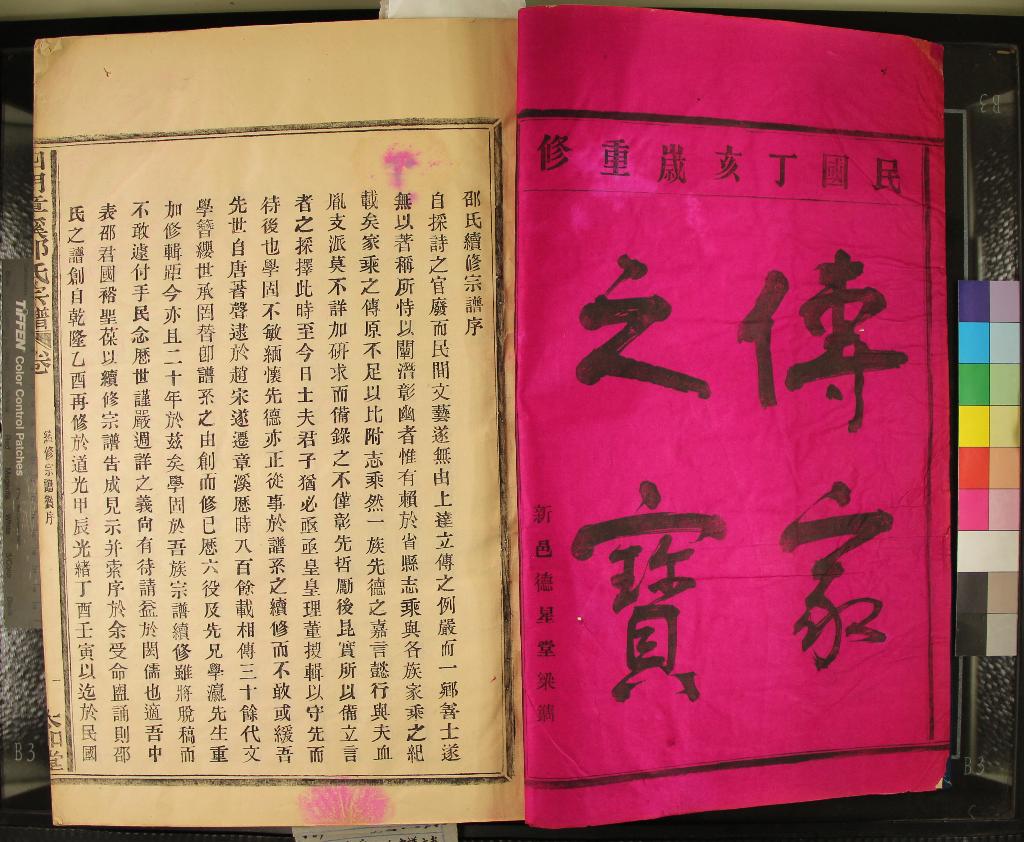 民國丁亥歲重修
傳家
之寶
新邑德星堂梁鐫
邵氏續修宗譜序
自採詩之官廢而民間文藝遂無由上達立傳之例嚴而一鄉善士遂
無以著稱所恃以闡潛彰幽者惟有賴於省縣志乘與各族家乘之紀
載矣家乘之傳原不足以比附志乘然一族先德之嘉言懿行與夫血
胤支派莫不詳加研求而備錄之不僅彰先哲勵後昆實所以備立言
者之採擇此時至今日士夫君子猶必亟亟皇皇理董搜輯以守先而
待後也學固不敏緬懷先德亦正從事於譜系之續修而不敢或緩吾
先世自唐著聲逮於趙宋遂遷章溪歷時八百餘載相傳三十餘代文
學簪纓世承罔替卽譜系之由創而修已歷六役及先兄學瀛先生重
加修輯距今亦且二十年於茲矣學固於吾族宗譜續修雖將脫稿而
不敢遽付手民念歷世謹嚴週詳之義尙有待請益於閎儒也適吾中
表邵君國裕聖葆以續修宗譜告成見示并索序於余受命盥誦則邵
氏之譜創自乾隆乙酉再修於道光甲辰光緒丁酉壬寅以迄於民國
四明章溪邵氏宗譜 卷
續修宗譜舊序
一
大和堂
TIFFEN Color Control Patches
B3
B3
B3